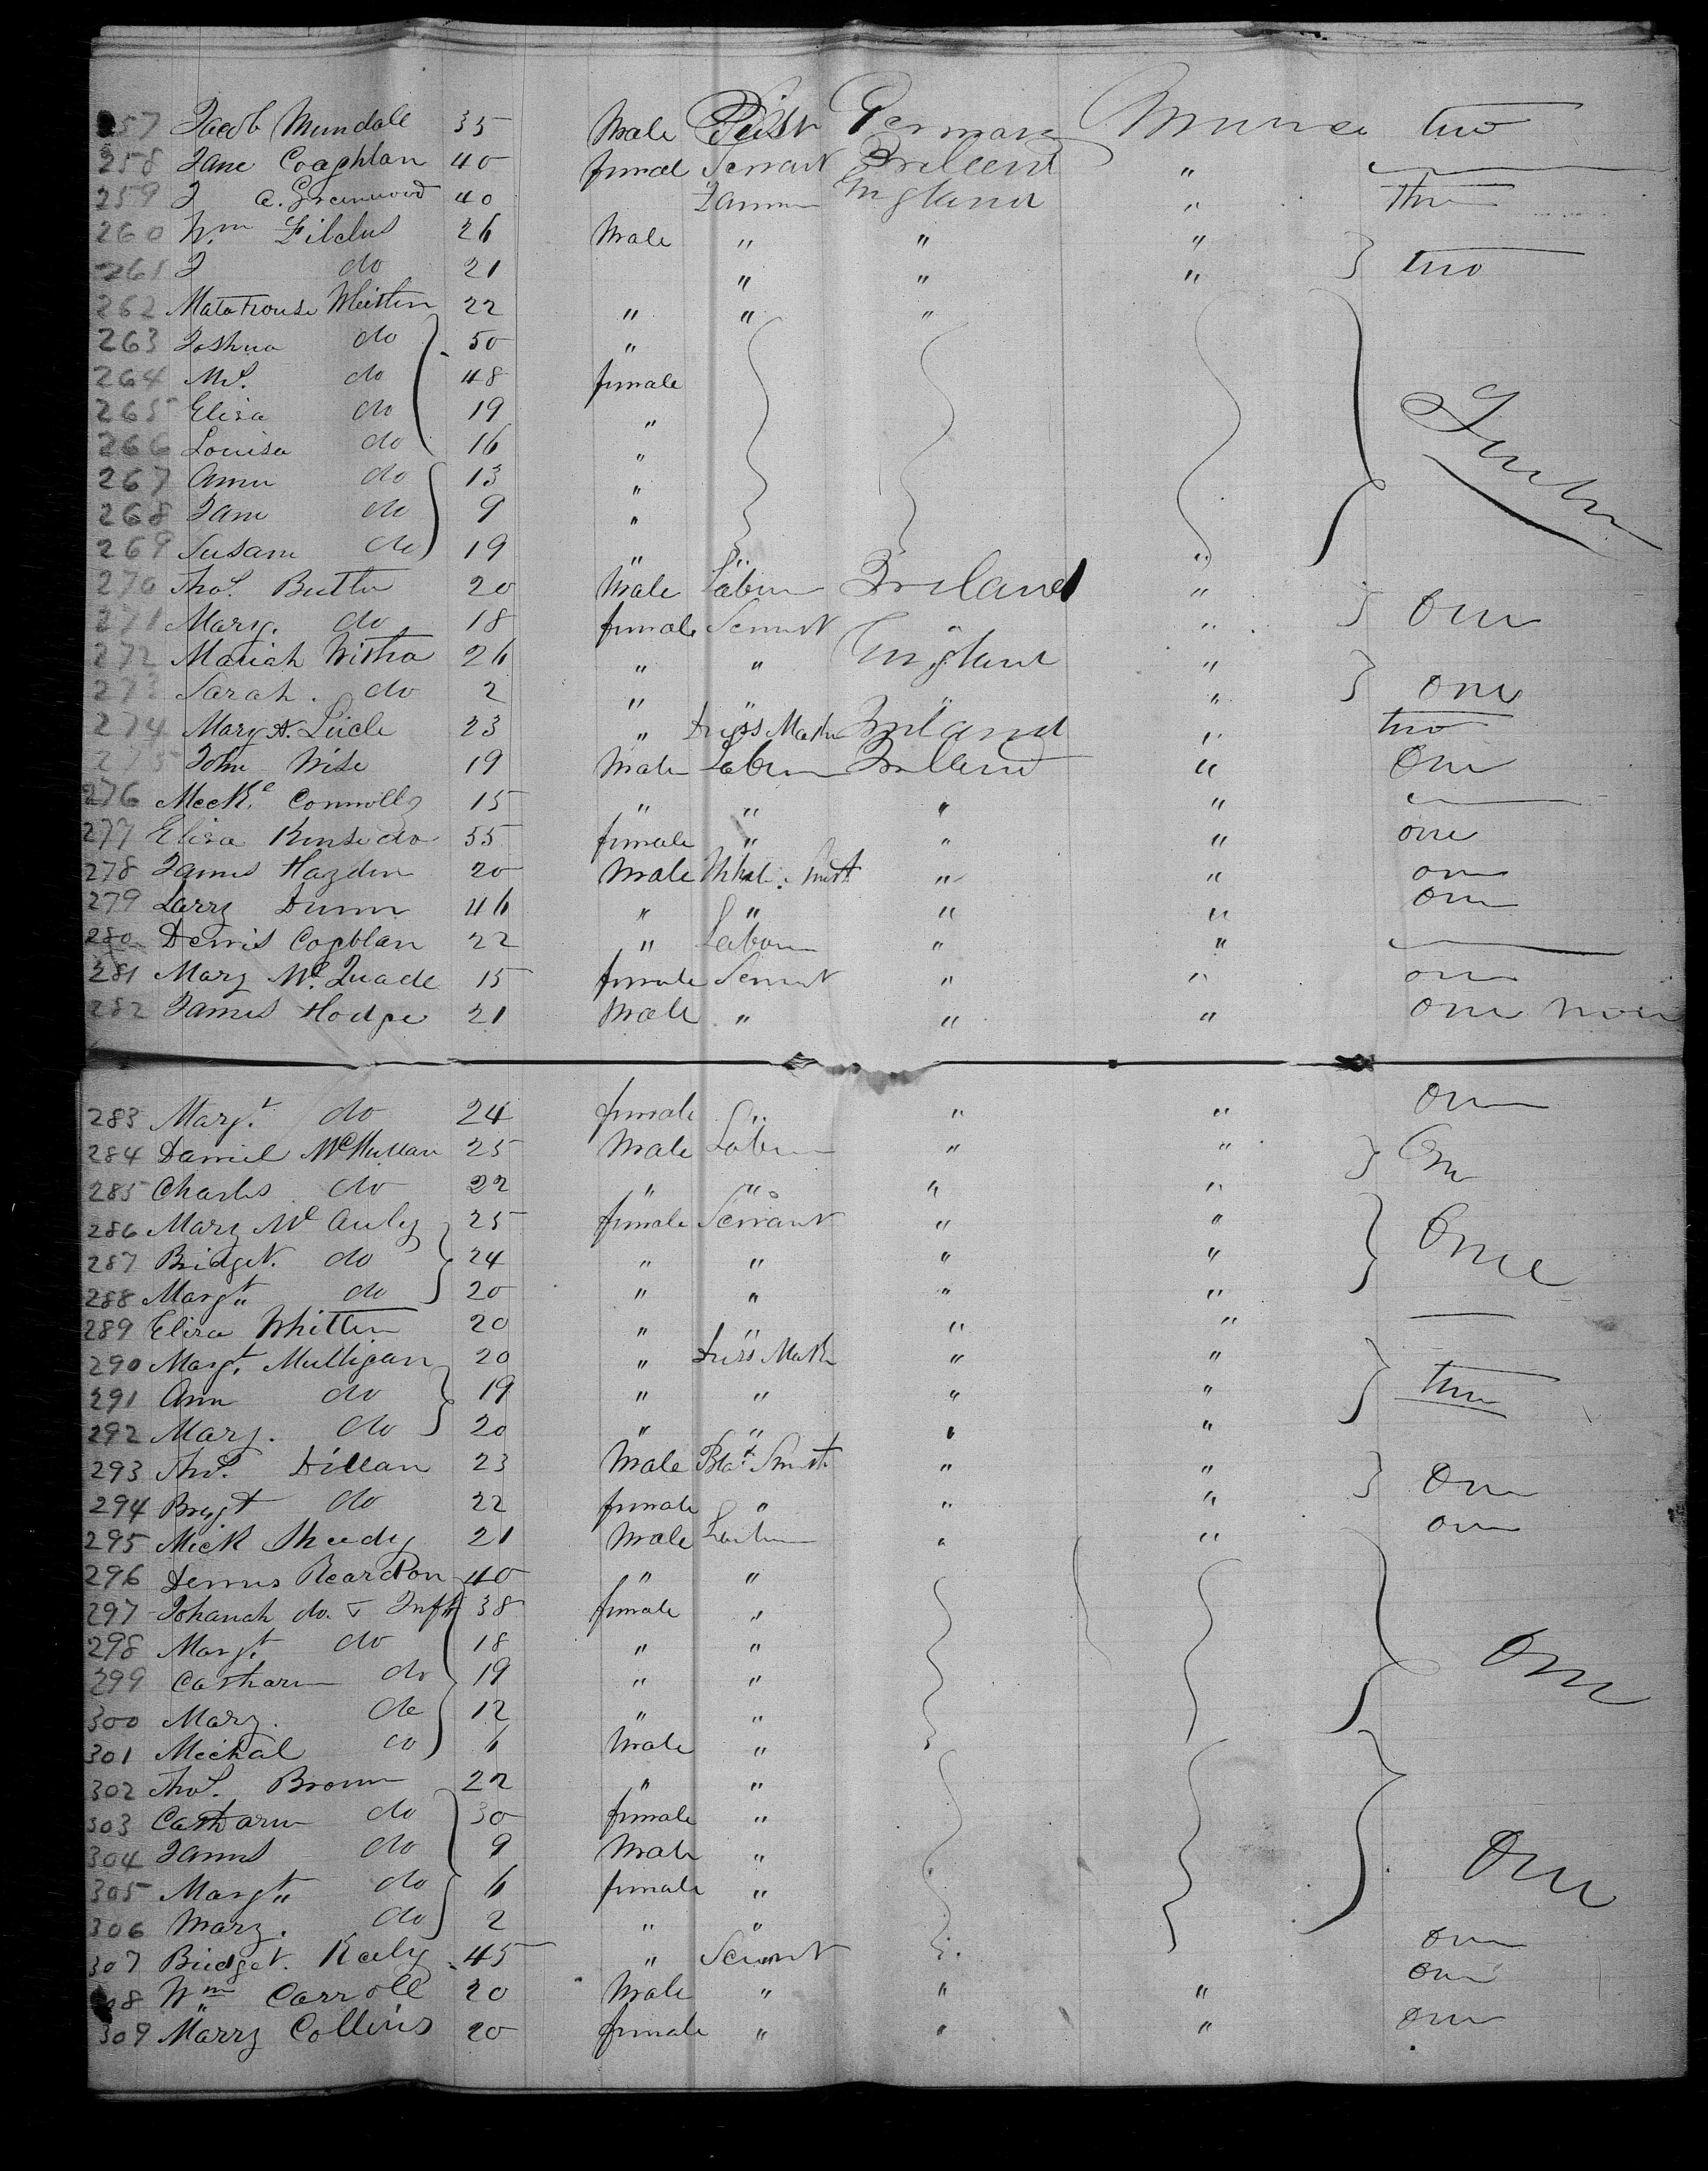 257 Jacob Mundall 35 Male German two
258 Jane Coaghlan 40 femal Servant Ireland "
259 J C. Greenwood 40 Farmer England " Three
260 Wm Fildes 26 Male " " "
261 J do 21 " " " two
262 Whitten 22 " " "
263 Joshua do 50 "
264 Mrs. do 48 female
265 Eliza do 19 "
266 Louisa do 16 "
267 Ann do 13 "
268 Jane do 9 "
269 Susann do 19 " " "
270 Thos. Butler 20 Male Labour Ireland "
271 Mary. do 18 female Servant " One
272 Mariah 26 " " England "
273 Sarah. do 2 " " " " one
274 Mary A. 23 " Dress Maker Ireland " two
275 John Wise 19 Male Labour Ireland " One
276 Connolly 15 " " " "
277 Eliza 55 female " " " one
278 James Hayden 20 Male " " one
279 Larry Dunn 46 " " " " one
280 Dennis Coghlan 22 " Labour " "
281 Mary McQuade 15 female Servant " " one
282 James Hodge 21 Male " " " one
283 Margt. do 24 female " " " one
284 Daniel McMullan 25 Male Labour " " One
285 Charles do 22 " " " "
286 Mary McAuly 25 female Servant " "
287 Bridget. do 24 " " " " One
288 Margt do 20 " " " "
289 Eliza Whitten 20 " " " "
290 Margt. Mulligan 20 " Dress Maker " "
291 Ann do 19 " " " " three
292 Mary. do 20 " " " "
293 Thos. Dillan 23 Male " "
294 do 22 female " " " One
295 Mick Sheedy 21 Male Labour " " one
296 Dennis Reardon 40 " "
297 Johanah do. & Inft 38 female "
298 Margt. do 18 " "
299 Catharine do 19 " " One
300 Mary. do 12 " "
301 Michal do 6 Male "
302 Thos. Brown 22 " "
303 Catharine do 30 female "
304 James do 9 Male "
305 Margt do 6 female " One
306 Mary. do 2 " "
307 Bridget. 45 " Servant one
308 Wm Carroll 20 Male " " " one
309 Marry Collins 20 female " " " one